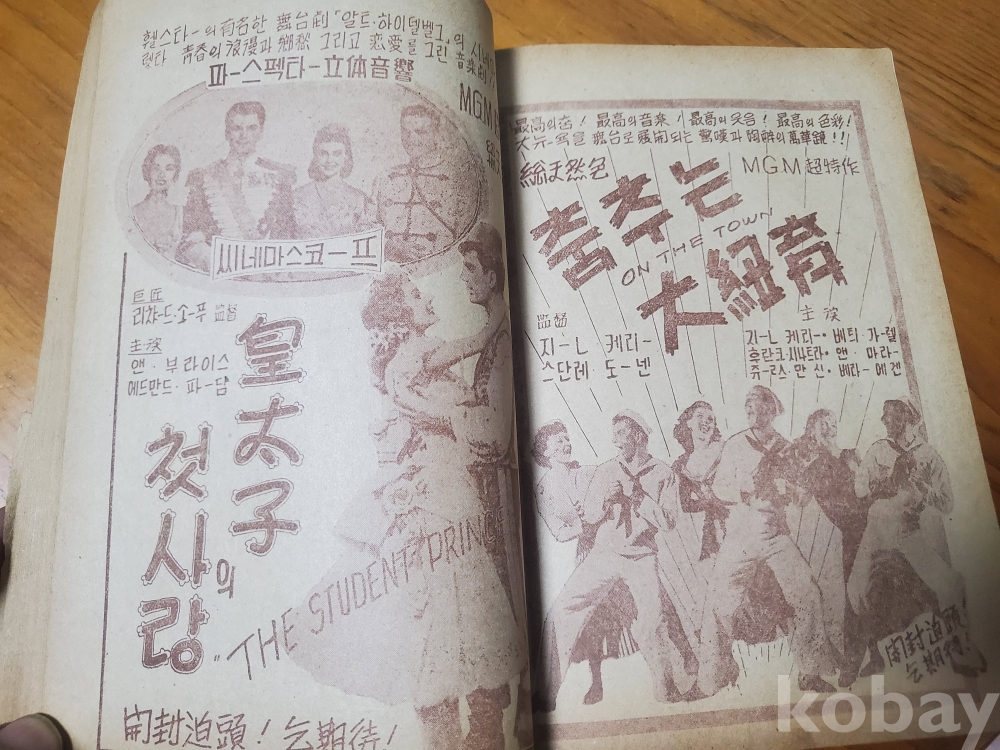 헬스타-의 有名한 舞台劇 「알트·하이델벨그」의 시네
렐타 青春의 浪漫과 鄕愁 그리고 恋愛를 그린 音楽劇
파-스펙타-立体音響
MGM
씨네마스코-프
巨匠
리챠-드·소-푸 監督
主演
앤·부라이스
에드만드·파-담
皇太子의
첫사랑
"THE STUDENT PRINCE
開封迫頭! 乞期待!
最高의 춤! 最高의 音楽! 最高의 웃음! 最高의 色彩!
大뉴-욕을 舞台로 展開되는 驚嘆과 陶酔의 萬華鏡!!!
総天然色
MGM 超特作
춤추는
ON THE TOWN
大紐育
監督
지-ㄴ 케리-
스단레 도-넨
主演
지-ㄴ 케리-·베틔·가-렐
후랑코·시나트라·앤·마라-
쥬-르스·만신·베라-에겐
開封迫頭!
乞期待!
kobay